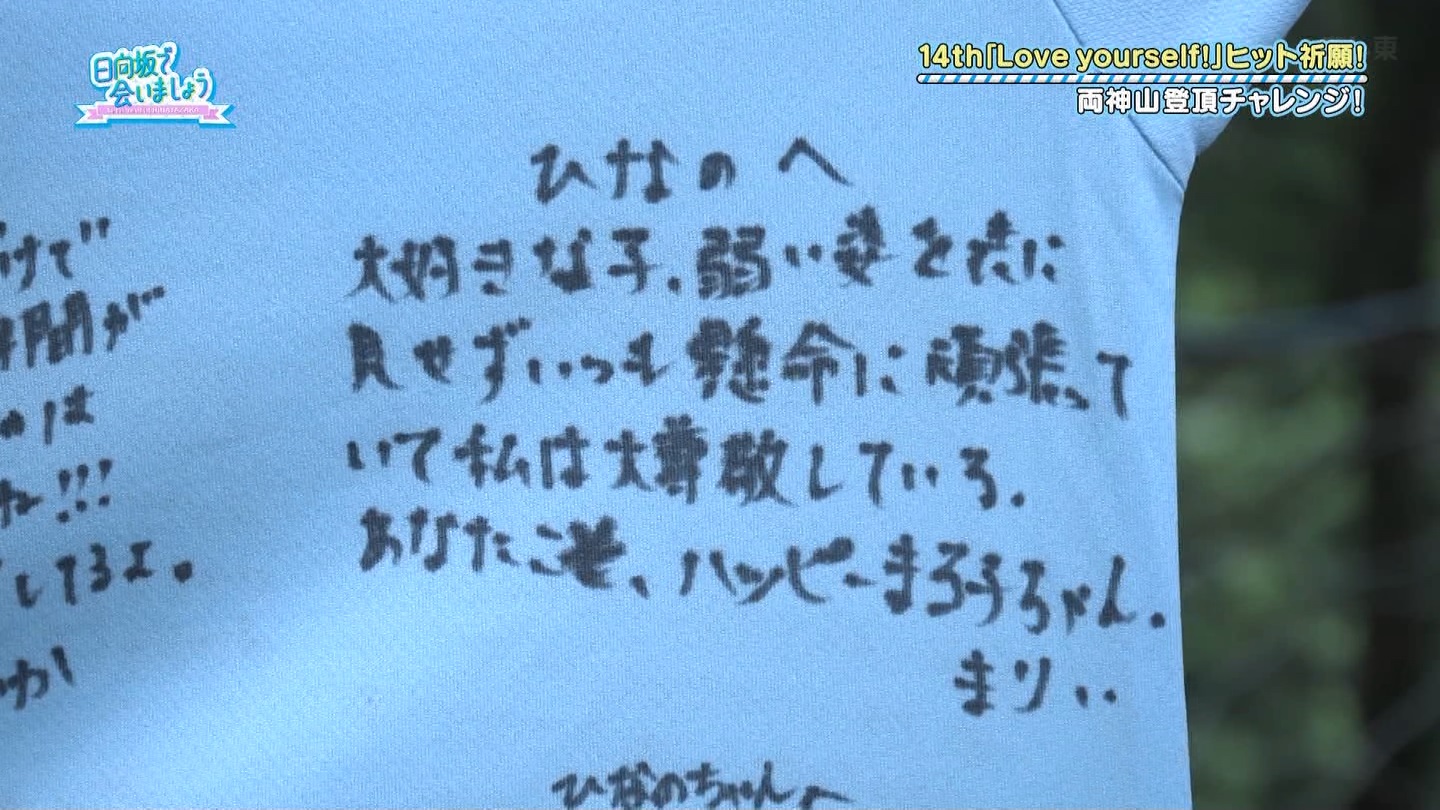 日向坂で
会いましょう
14th「Love yourself!」ヒット祈願!
両神山登頂チャレンジ!
ひなのへ
大好きな子.弱い姿を表に
見せずいつも懸命に頑張って
いて私は大尊敬している.
あなたこそ、ハッピーまろうちゃん.
まりぃ
けで
時間が
は
ね!!!
してるよ。
か
ひなのちゃんへ